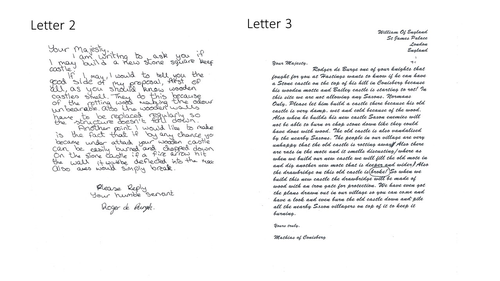 Letter 2
Your Majesty.
I am writing to ask you if
I may build a new stone square keep
castle.
If I may, I would to tell you the
good side of my proposal, first of
all, as you should know wooden
castles smell. They do this because
of the rotting wood making the odour
unbearable also the wooden walls
have to be replaced regularly so
the structure doesn't fall down.
Another point I would like to make
is the fact that if by any chance you
became under attack your wooden castle
can be easily burned and chopped down
On the stone castle if a fire arrow hit
the wall it would be deflected into the
Also axes would simply break.
Please Reply
Your humble servant
Roger de Burgh.
Letter 3
William Of England
St James Palace
London
England
Your Majesty.
Rodger de Burge one of your knights that
fought for you at Hastings wants to know if he can have
a Stone castle on the top of his hill in Conisbrey because
his wooden motte and Bailey castle is starting to rot! In
this site we are not allowing any Saxons, Normans
Only. Please let him build a castle there because his old
castle is very damp, wet and cold because of the wood.
Also when he builds his new castle Saxon enemies will
not be able to burn or chop stone down like they could
have down with wood. The old castle is also vandalised
by the nearby Saxons. The people in our village are very
unhappy that the old castle is rotting away! Also there
are rats in the mote and it smells disgusting/ where as
when we build our new castle we will fill the old mote in
and dig another new mote that is deeper and wider! Also
the drawbridge on this old castle is broke! So when we
build this new castle the drawbridge will be made of
wood with an iron gate for protection. We have even got
the plans drawn out in our village so you can come and
have a look and even burn the old castle down and pile
all the nearby Saxon villagers on top of it to keep it
burning.
Yours truly.
Mathius of Conisbrey